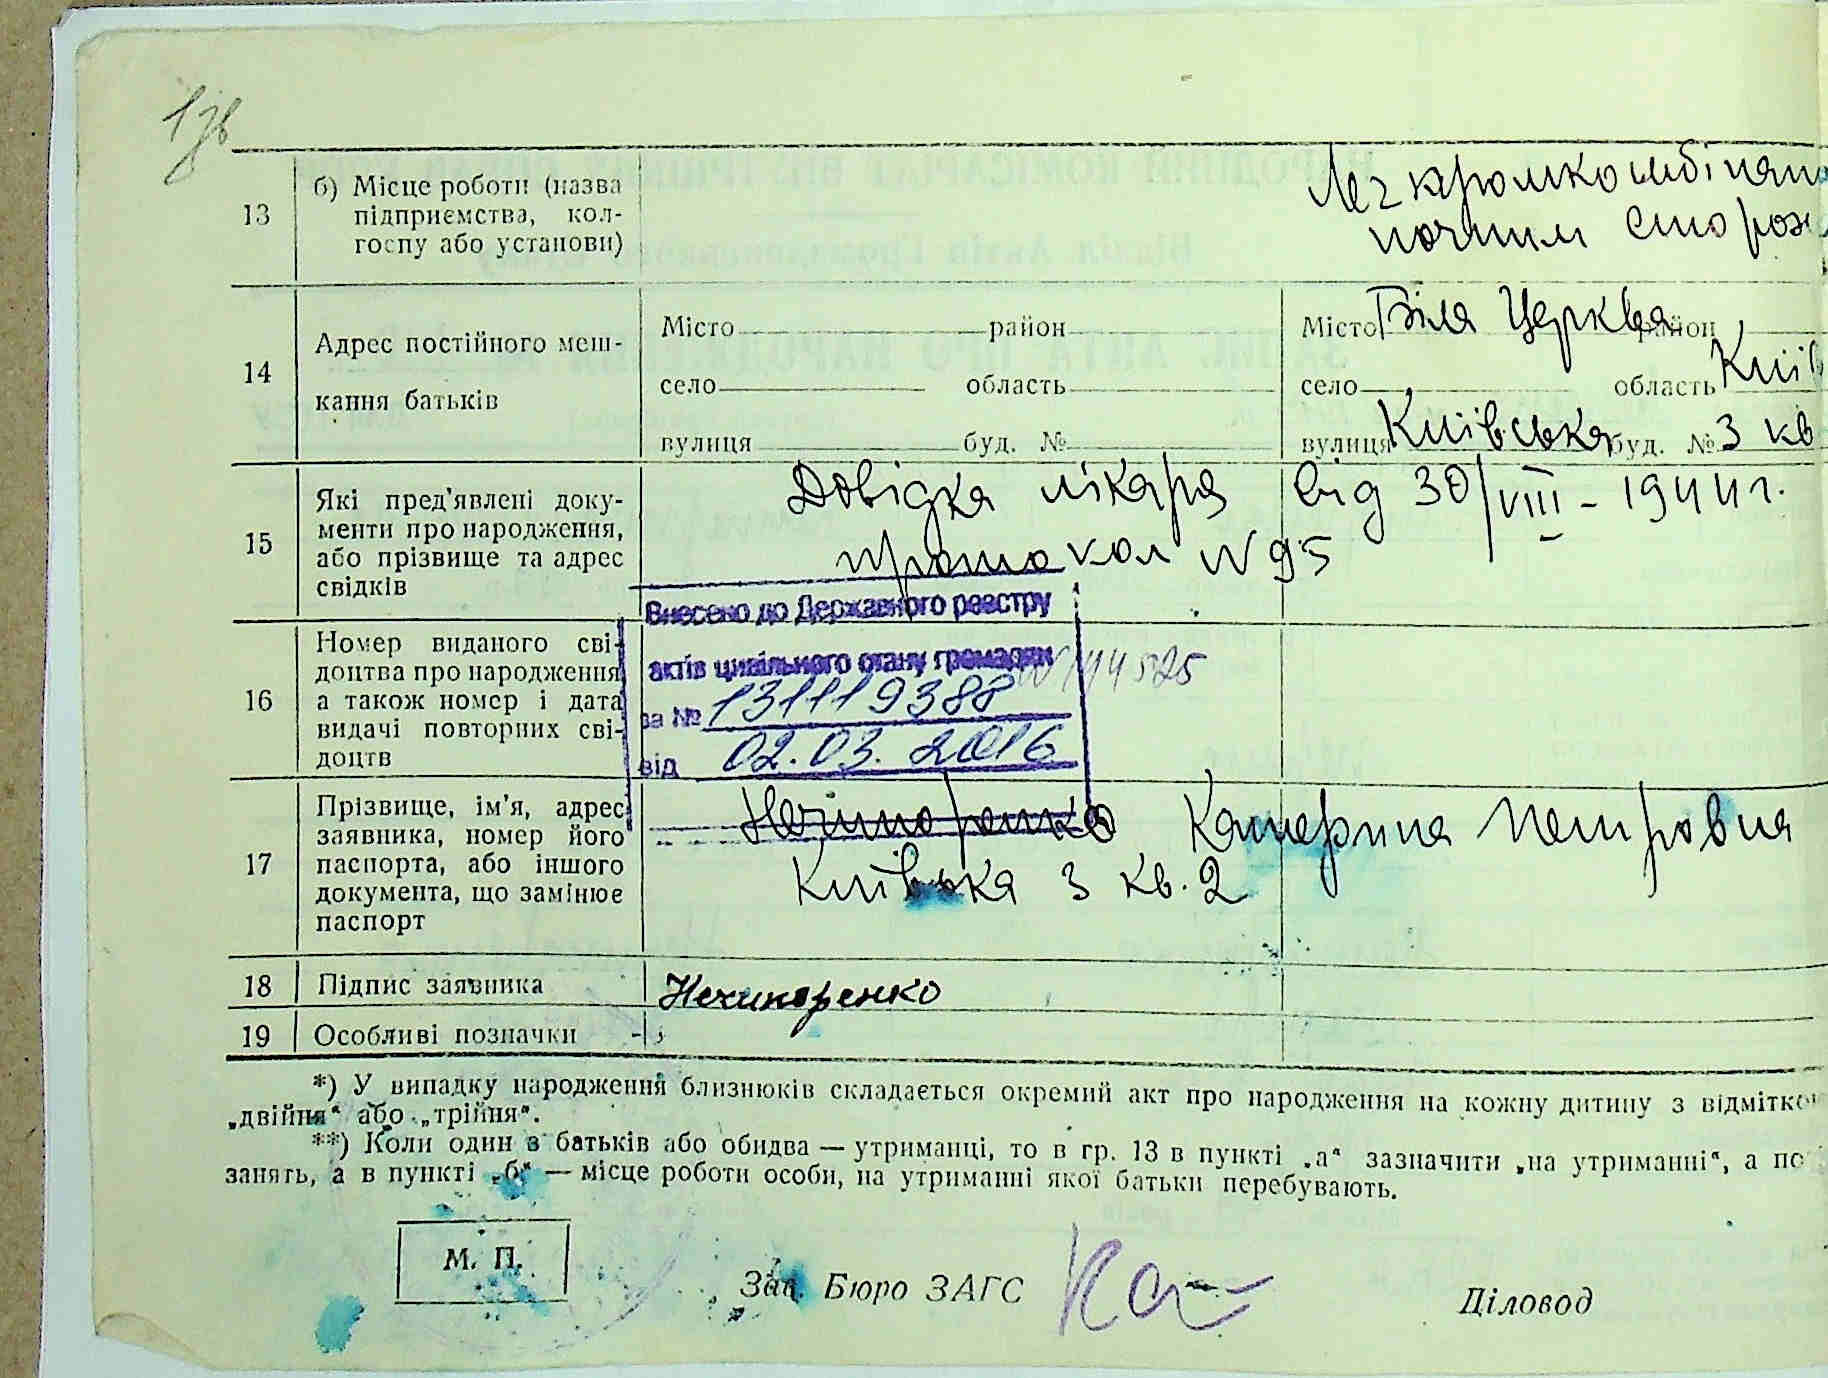 1 зв
13
б) Місце роботи (назва
підприємства, кол-
госпу або установи)
Легкромкомбінат
ночним Сторож
14
Адрес постійного меш-
кання батьків
Місто район
село область
вулиця буд. №
Місто Біла Церква район
село область Київ
вулиця Київська буд. № 3 кв
15
Які пред'явлені доку-
менти про народження,
або прізвище та адрес
свідків
Довідка лікаря від 30/VIII - 1944 г.
протокол N 95
16
Номер виданого сві-
доцтва про народження
а також номер і дата
видачі повторних сві-
доцтв
Внесено до Державного реєстру
актів цивільного стану громадян
за № 131119388
від 02.03.2016
N 144525
17
Прізвище, ім'я, адрес
заявника, номер його
паспорта, або іншого
документа, що замінює
паспорт
Нечипоренко Катерина Петровна
Київська 3 кв. 2
18 Підпис заявника
Нечипоренко
19 Особливі позначки
*) У випадку народження близнюків складається окремий акт про народження на кожну дитину з відмітко
„двійня“ або „трійня“.
**) Коли один з батьків або обидва — утриманці, то в гр. 13 в пункті „а“ зазначити „на утриманні“, а по
занять, а в пункті „б“ — місце роботи особи, на утриманні якої батьки перебувають.
М. П.
Зав. Бюро ЗАГС
Діловод